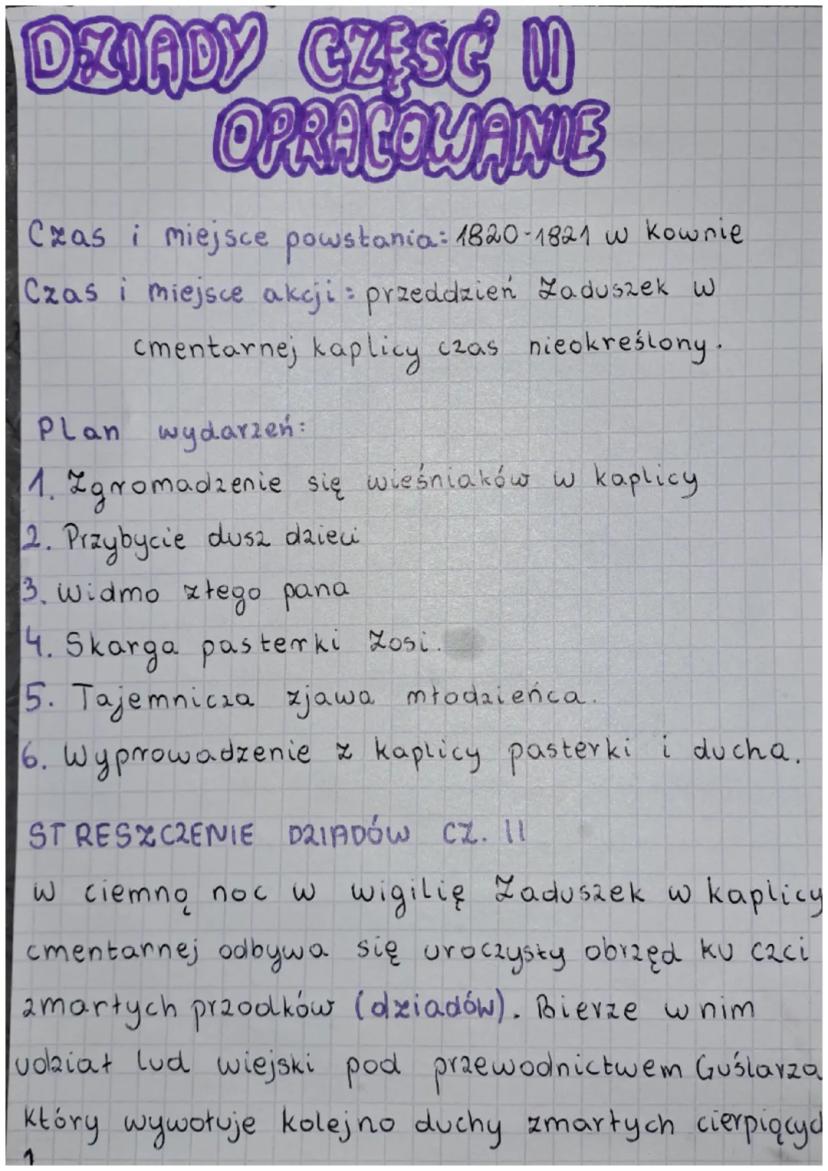 DZIADY CZĘŚĆ II
OPRACOWANIE
Czas i miejsce powstania: 1820-1821 w Kownie
Czas i miejsce akcji: przeddzień Zaduszek w
cmentarnej kaplicy czas nieokreślony.
Plan wydarzeń:
1. Zgromadzenie się wieśniaków w kaplicy
2. Przybycie dusz dzieci
3. Widmo złego pana
4. Skarga pasterki Zosi.
5. Tajemnicza zjawa młodzieńca.
6. Wyprowadzenie z kaplicy pasterki i ducha.
STRESZCZENIE DZIADÓW CZ. II
W ciemną noc w wigilię Zaduszek w kaplicy
cmentarnej odbywa się uroczysty obrzęd ku czci
zmarłych przodków (dziadów). Bierze w nim
udział lud wiejski pod przewodnictwem Guślarza
który wywołuje kolejno duchy zmarłych cierpiącyc
1